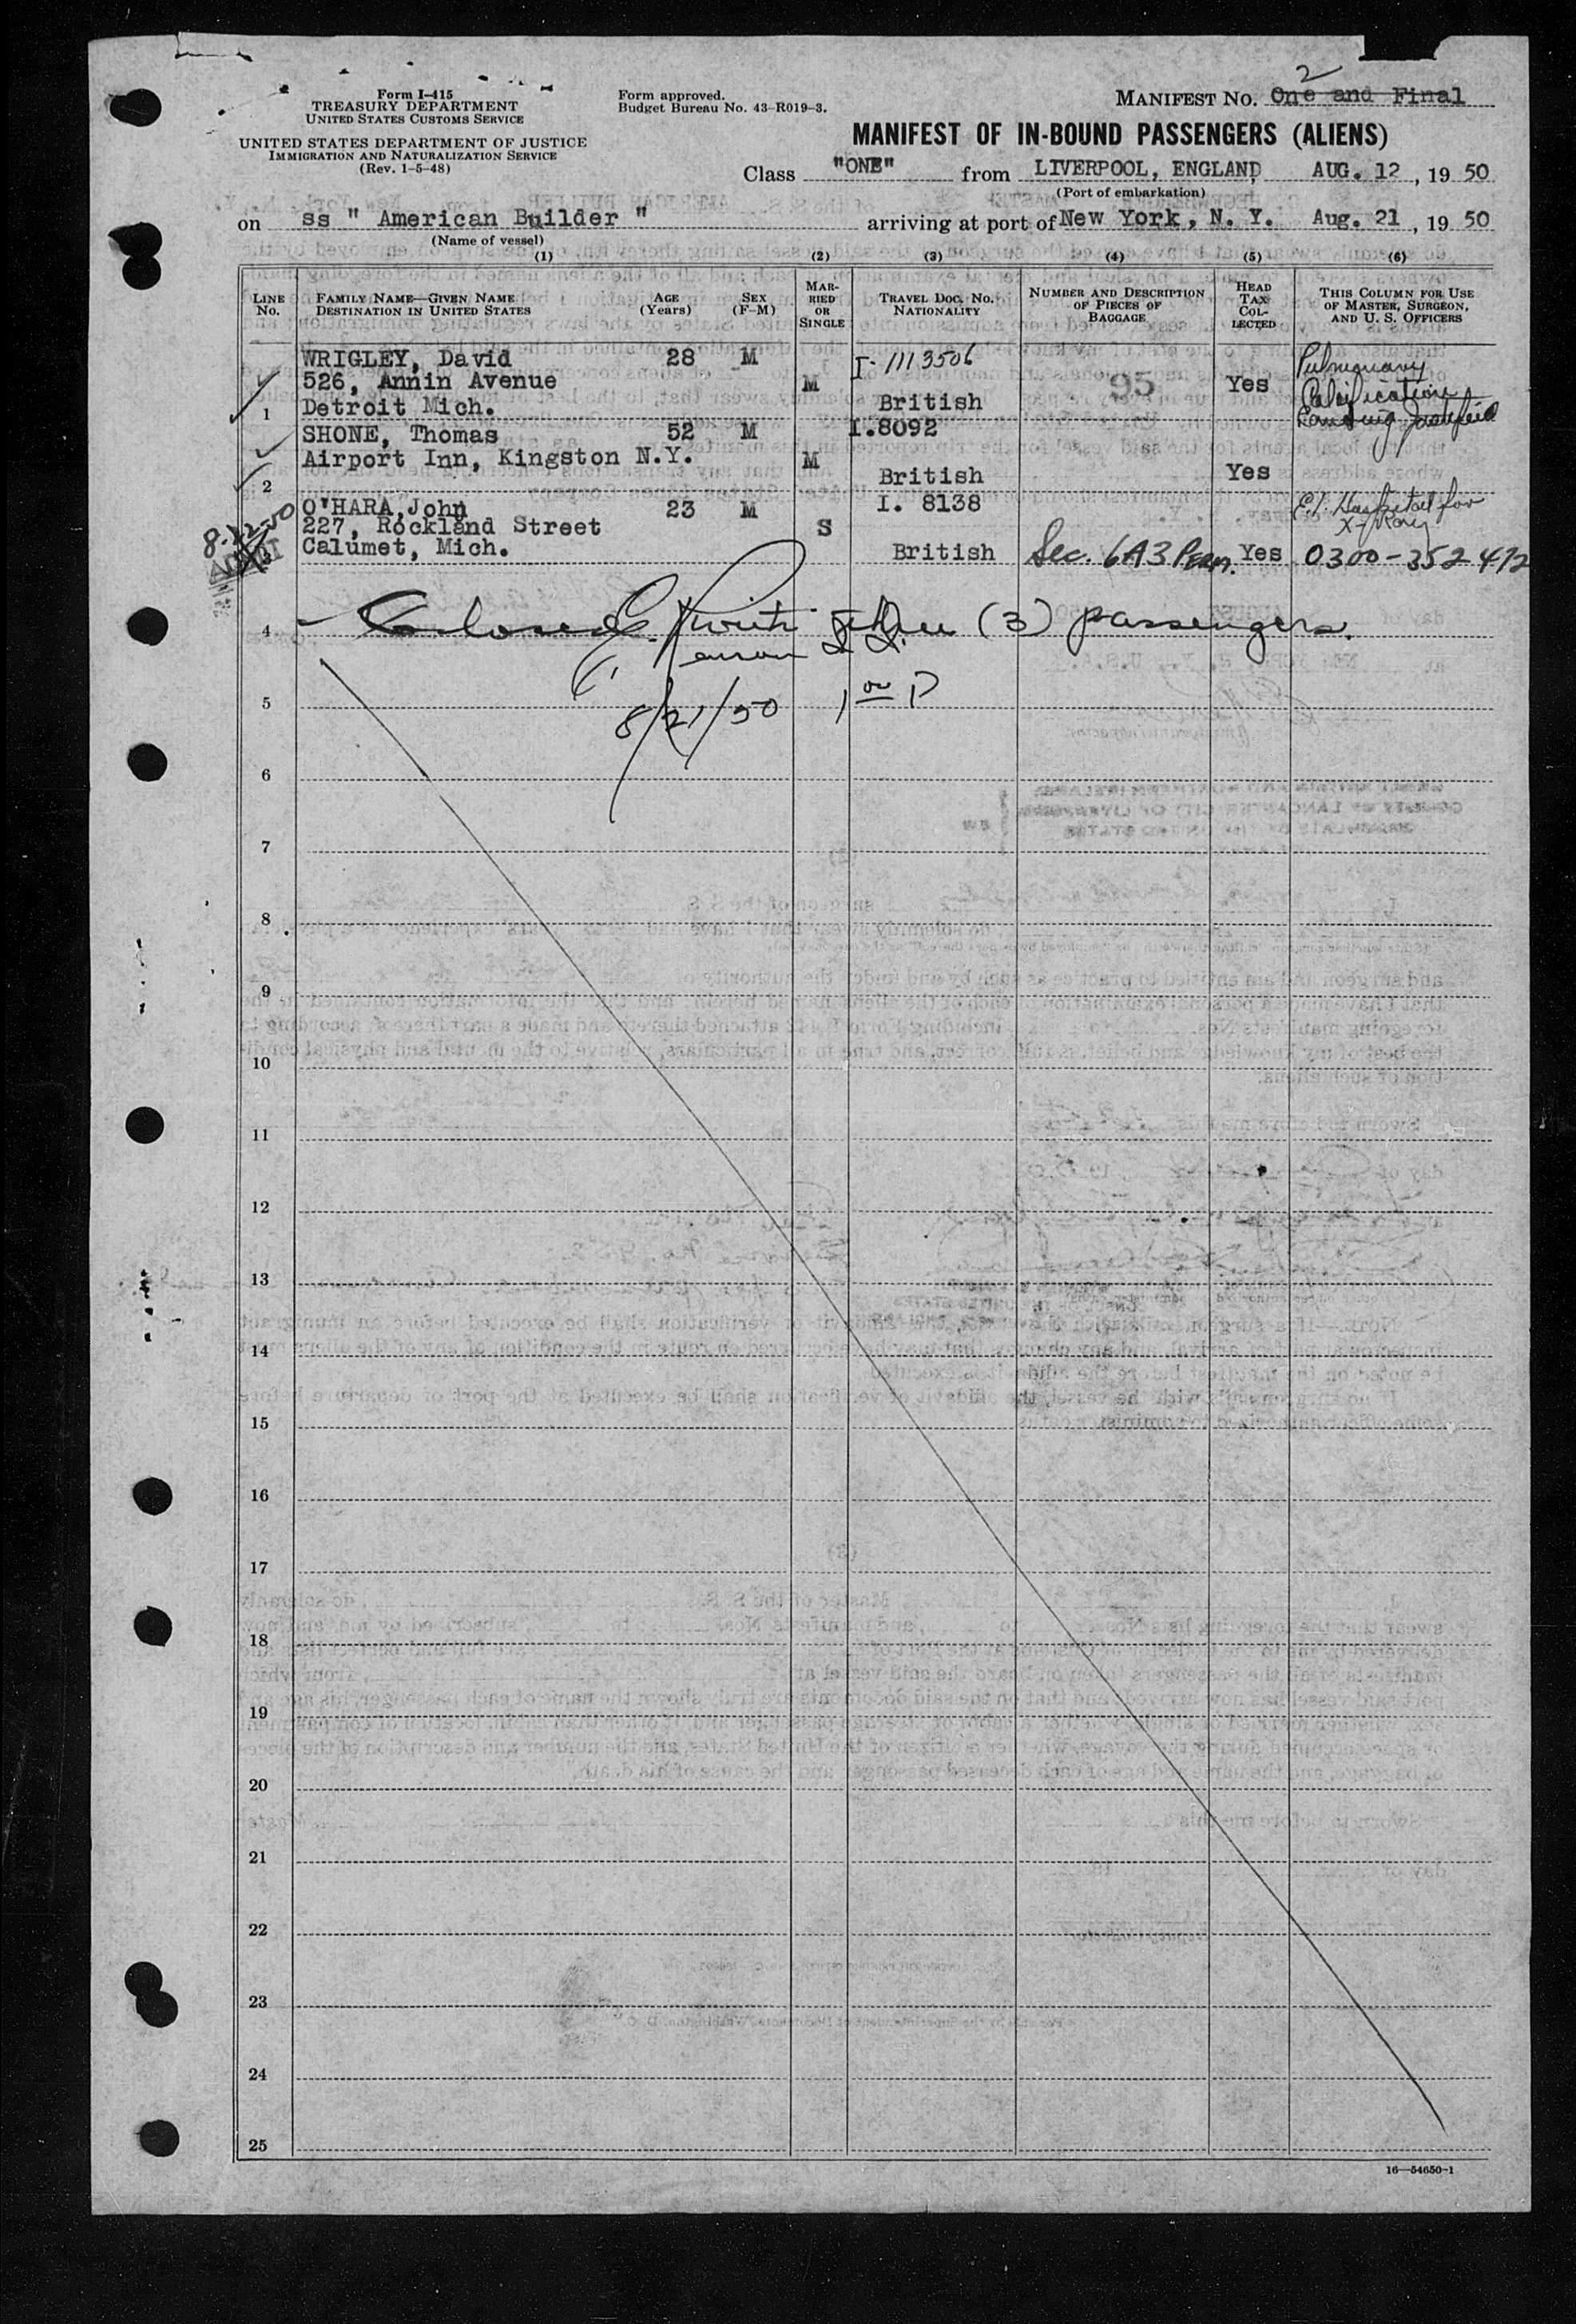 Form I-415
TREASURY DEPARTMENT
UNITED STATES CUSTOMS SERVICE
UNITED STATES DEPARTMENT OF JUSTICE
IMMIGRATION AND NATURALIZATION SERVICE
(Rev. 1-5-48)
Form approved.
Budget Bureau No. 43-R019-3.
2
MANIFEST NO. One and Final
MANIFEST OF IN-BOUND PASSENGERS (ALIENS)
Class "ONE" from LIVERPOOL, ENGLAND AUG. 12, 19 50
(Port of embarkation)
on ss " American Builder " arriving at port of New York, N. Y. Aug. 21, 19 50
(Name of vessel)
(1) (2) (3) (4) (5) (6)
LINE No.
FAMILY NAME—GIVEN NAME
DESTINATION IN UNITED STATES
AGE (Years)
SEX (F-M)
MARRIED OR SINGLE
TRAVEL DOC. NO.
NATIONALITY
NUMBER AND DESCRIPTION OF PIECES OF BAGGAGE
HEAD TAX COLLECTED
THIS COLUMN FOR USE OF MASTER, SURGEON, AND U. S. OFFICERS
WRIGLEY, David 28 M I-1113506 Pulmonary
526, Annin Avenue M 95 Yes Calcification
1 Detroit Mich. British
SHONE, Thomas 52 M I.8092
Airport Inn, Kingston N.Y. M Yes
2 British
O'HARA, John 23 M I. 8138 E.I. Hospital for
227, Rockland Street S X-Ray
8-22-50 ADMIT
3 Calumet, Mich. British Sec. 6A3 Perm. Yes 0300-352472
4 Closed with three (3) passengers.
5
8/21/50
6
7
8
9
10
11
12
13
14
15
16
17
18
19
20
21
22
23
24
25
16—54650-1